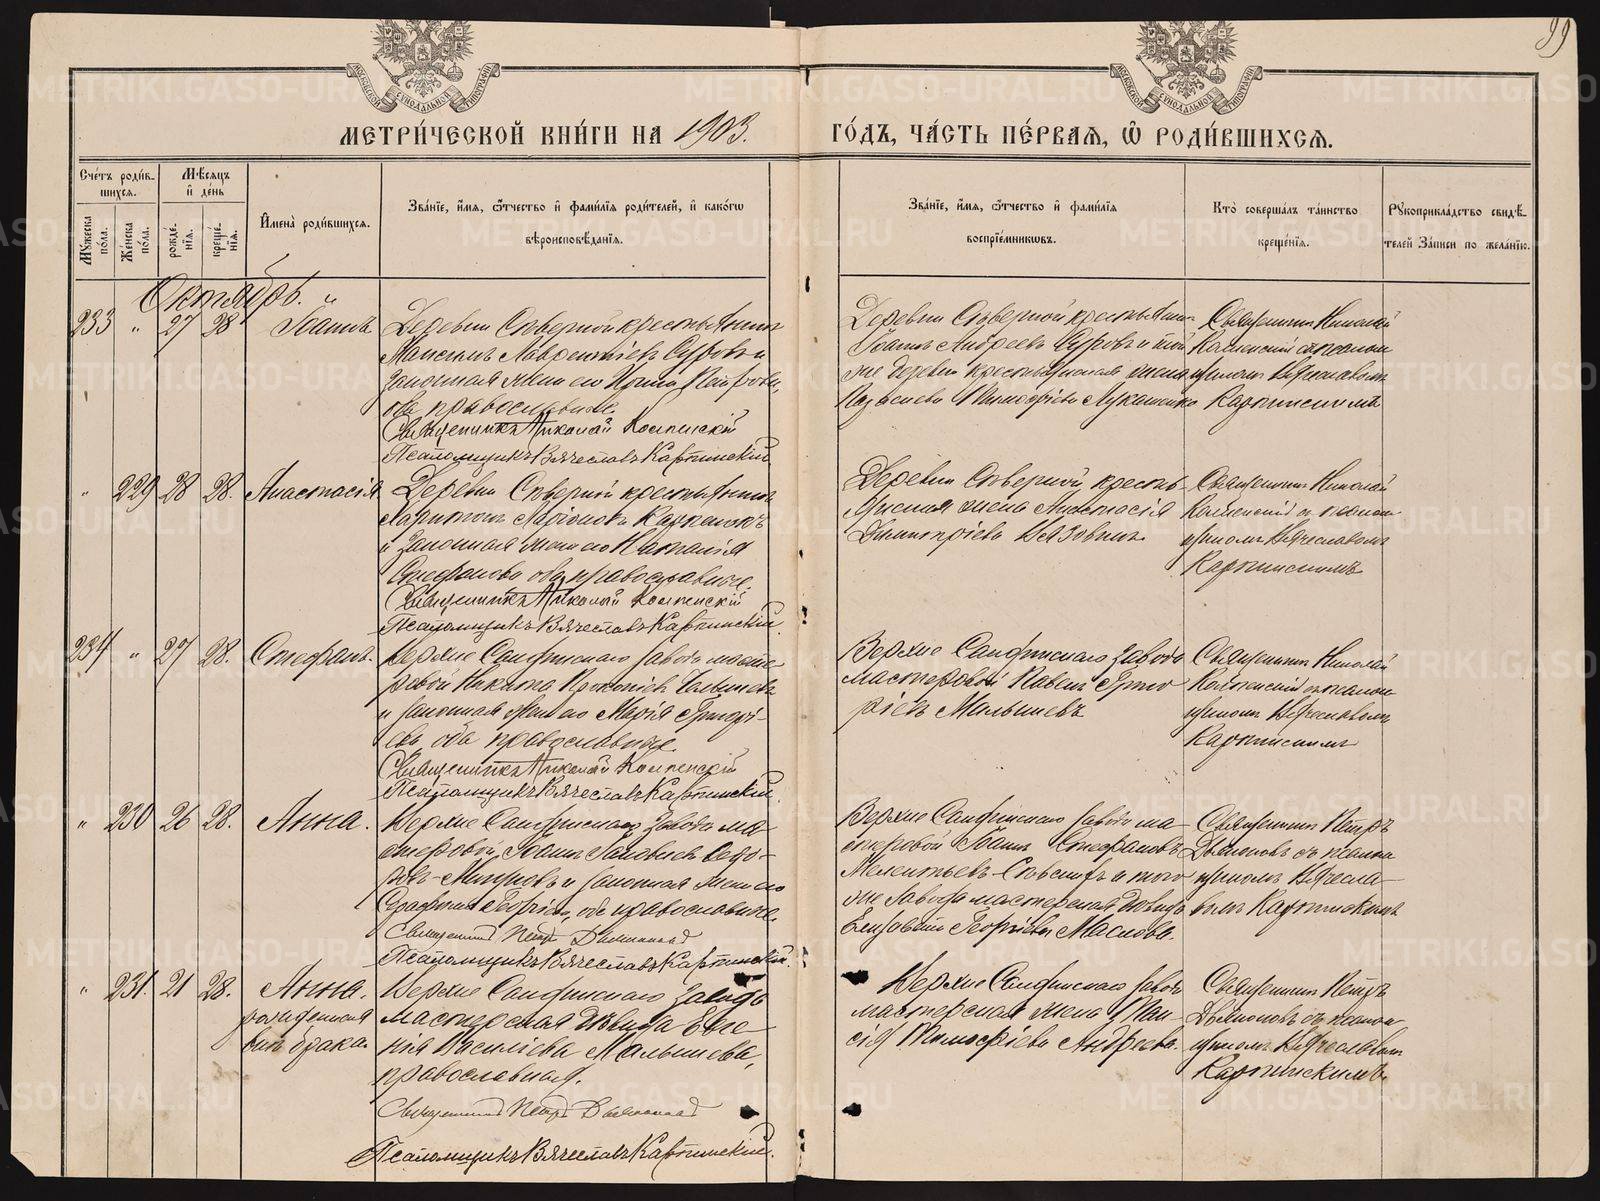 99
МЕТРИ́ЧЕСКОЙ КНИ́ГИ НА 1903.
ГО́ДЪ, ЧА́СТЬ ПЕ́РВАЯ, Ѡ РОДИ́ВШИХСЯ.
Сче́тъ роди́в-
шихся.
Му́жеска по́ла.
Же́нска по́ла.
Мѣ́сяцъ и де́нь
рожде́нія.
креще́нія.
Имена̀ роди́вшихся.
Зва́ніе, и́мя, ѻ́тчество и фами́лія роди́телей, и како́гѡ
вѣроисповѣ́данія.
Зва́ніе, и́мя, ѻ́тчество и фами́лія
воспріе́мниковъ.
Кто̀ соверша́лъ та́инство
креще́нія.
Рꙋкоприкла́дство свидѣ́-
телей за́писи по жела́нію.
Октябрь.
233 " 27 28 Іоаннъ
Деревни Сѣверной крестьянинъ
Лаврентіевъ Суровъ и
законная жена его Ирина Петрова,
оба православные.
Священникъ Николай
Псаломщикъ Вячеславъ Карпинскій
Деревни Сѣверной крестьянинъ
Іоаннъ Андреевъ Суровъ и той
же деревни крестьянская жена
Тимофеева
Священникъ Николай
Вячеславомъ
Карпинскимъ
" 229 28 28. Анастасія
Деревни Сѣверной крестьянинъ
Харитонъ
и законная жена его Наталія
Стефанова оба православные.
Священникъ Николай
Псаломщикъ Вячеславъ Карпинскій
Деревни Сѣверной кресть-
янская жена Анастасія
Димитріева Вязовикъ
Священникъ Николай
Вячеславомъ
Карпинскимъ
234 " 27 28. Стефанъ.
Верхне Салдинскаго завода масте-
ровой Никита Прокопіевъ
и законная жена его Марія Григорі-
ева, оба православные
Священникъ Николай
Псаломщикъ Вячеславъ Карпинскій
Верхне Салдинскаго завода
мастеровой Павелъ Григо
ріевъ Малышевъ
Священникъ Николай
Вячеславомъ
Карпинскимъ
" 230 26 28. Анна.
Верхне Салдинскаго завода ма-
стеровой Іоаннъ Ѳедо-
ровъ и законная жена его
оба православные.
Священникъ Петръ Дьяконовъ
Псаломщикъ Вячеславъ Карпинскій.
Верхне Салдинскаго завода ма-
стеровой Іоаннъ Стефановъ
Мелентьевъ и того
же завода мастерская дѣвица
Елизавета Георгіева Маслова.
Священникъ Петръ
Дьяконовъ съ псалом
щикомъ Вячесла-
вомъ Карпинскимъ
" 231. 21 28. Анна.
рожденная
внѣ брака.
Верхне Салдинскаго завода
мастерская дѣвица Евге-
нія Василіева Малышева,
православная.
Священникъ Петръ Дьяконовъ
Псаломщикъ Вячеславъ Карпинскій.
Верхне Салдинскаго завода
мастерская жена Таи-
сія Тимофіева Андреева.
Священникъ Петръ
Дьяконовъ съ псалом
щикомъ Вячеславомъ
Карпинскимъ.
METRIKI.GASO-URAL.RU